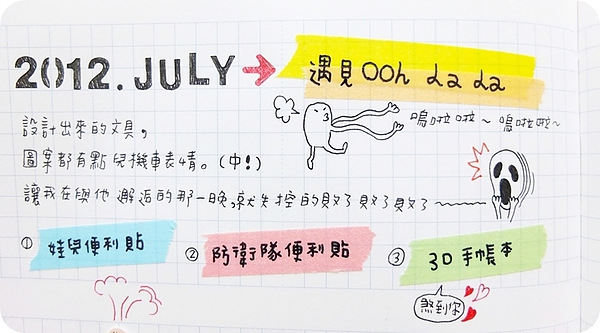 2012. JULY → 遇見 Ooh La La
嗚啦啦~嗚啦啦~
設計出來的文具，
圖案都有點兒機車表情。(中!)
讓我在與他邂逅的那一晚，就失控的敗了敗了敗了~
① 娃兒便利貼 ② 防衛隊便利貼 ③ 3D手帳本
煞到你